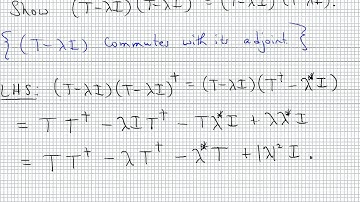 Show (T-λI)(T-λI)† = (T-λI)†(T-λI).
{(T-λI) commutes with its adjoint}
LHS: (T-λI)(T-λI)† = (T-λI)(T†-λ*I)
= TT† - λIT† - Tλ*I + λλ*I
= TT† - λT† - λ*T + |λ|²I.